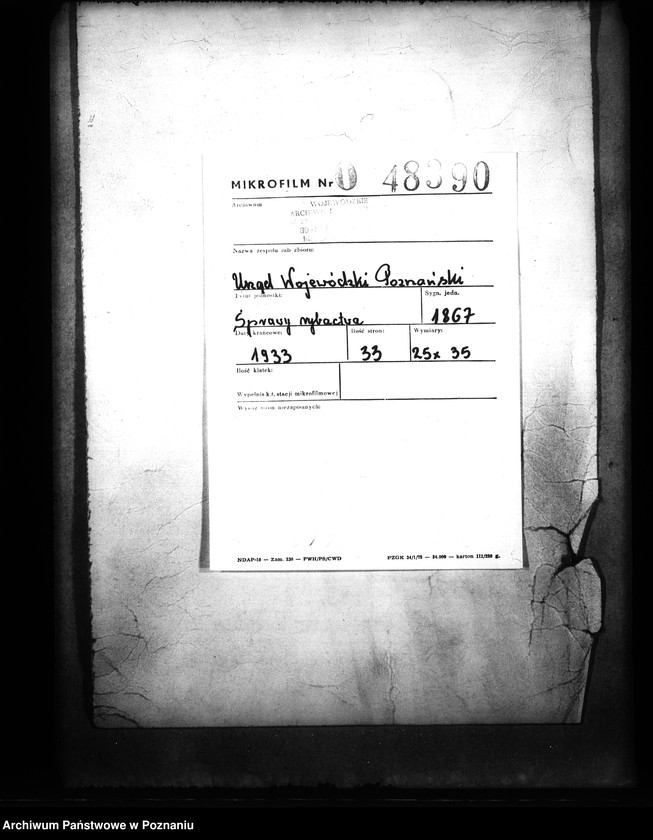 MIKROFILM Nr 0 48390
Archiwum
WOJEWÓDZKIE
Nazwa zespołu lub zbioru:
Urząd Wojewódzki Poznański
Tytuł jednostki:
Sygn. jedn.
Sprawy rybactwa
1867
Daty krańcowe:
Ilość stron:
Wymiary:
1933
33
25x 35
Ilość klatek:
Wypełnia k.t. stacji mikrofilmowej
Wykaz stron niezapisanych:
NDAP-10 — Zam. 230 — PWH/PS/CWD
PZGK 34/1/75 — 24.000 — karton III/200 g.
Archiwum Państwowe w Poznaniu